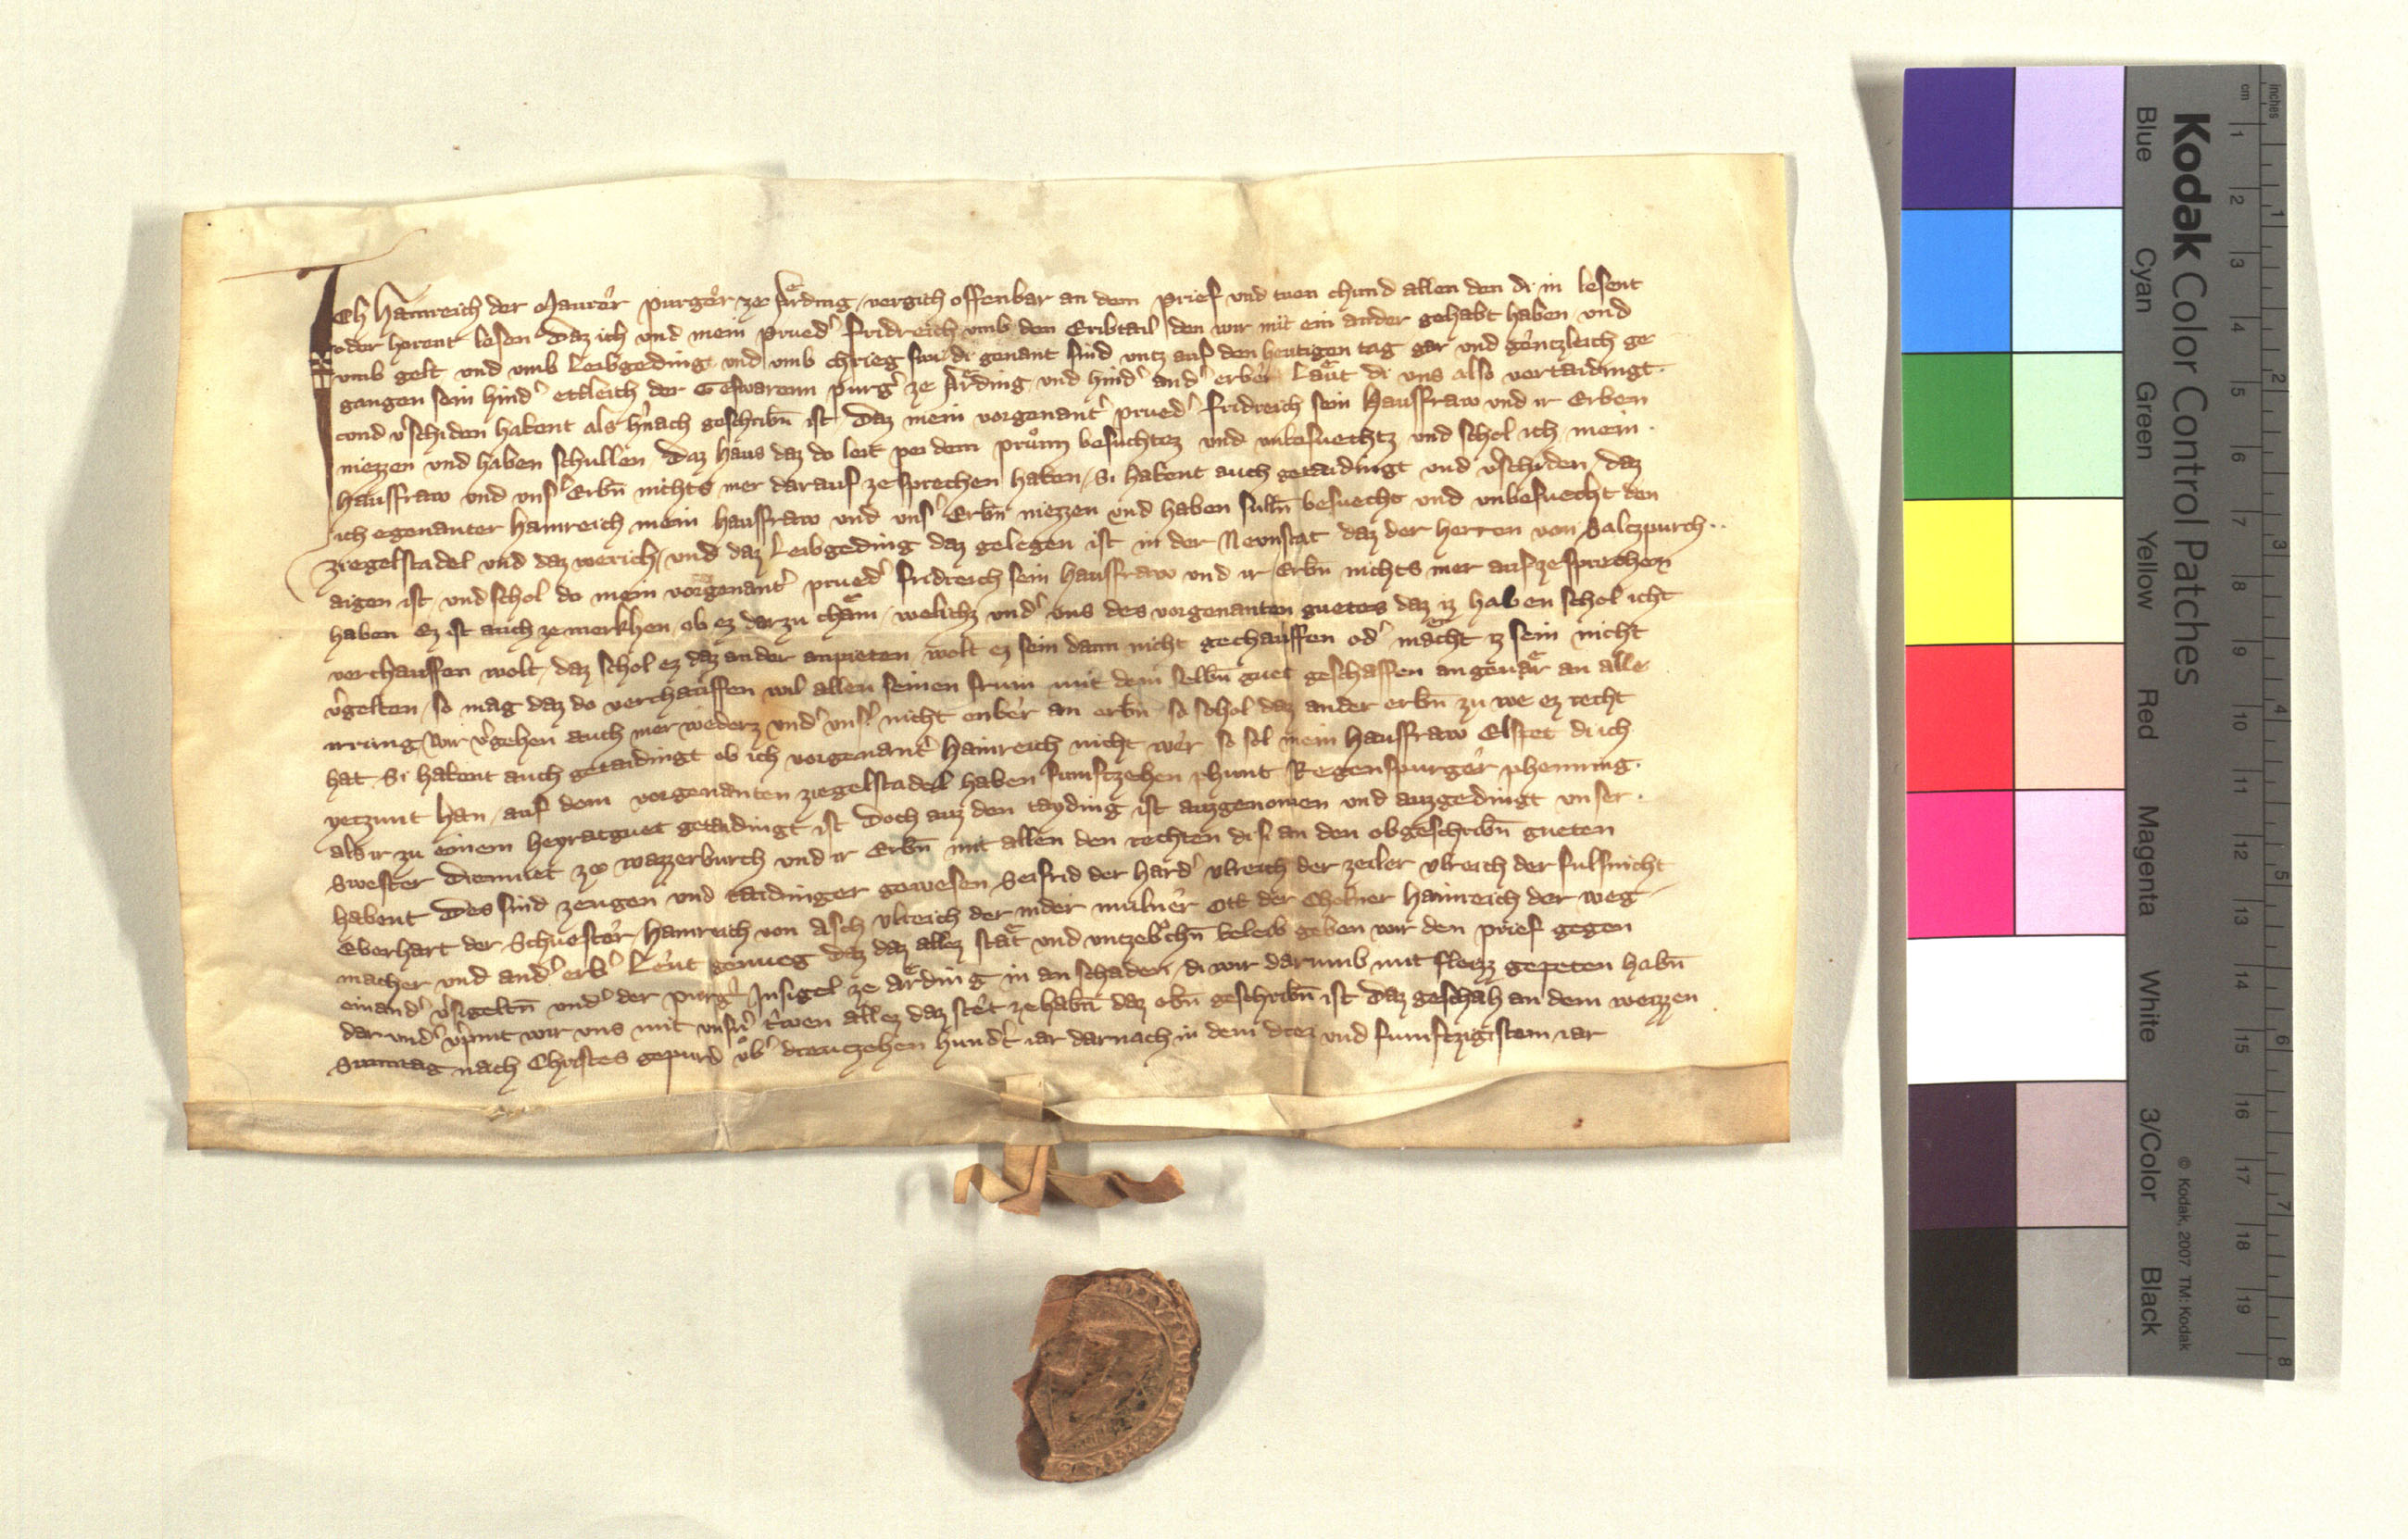 Ich Hainreich der Maurer purger ze Aͤrding vergich offenbar an dem prief vnd tuen chund allen den di in lesent
oder horent lesen Daz ich vnd mein prued' fridreich vmb den Eribtail den wir mit ein ander gehabt haben vnd
vmb gelt vnd vmb Leibgeding vnd vmb chrieg swi di genant sind vntz auf den heutigen tag gar vnd gentzleich ge
gangen sein hind' ettleich der Geswarenn purg' ze Aͤrding vnd hind' and' erber Laͤut di vns also vertaidingt
vnd v'schiden habent als h'nach geschribn̄ ist Daz mein vorgenant' prued' fridreich sein hausfraw vnd ir Erben
niezzen vnd haben schullen Daz haus daz do leit pei dem prunn besuchtez vnd vnbesuechtz vnd schol ich mein
hausfraw vnd vns' Erbn̄ nichts mer darauf ze sprechen haben Si habent auch getaidingt vnd v'schiden daz
ich egenanter hainreich mein hausfraw vnd vns' Erbn̄ niezzen vnd haben sulln̄ besuecht vnd vnbesuecht den
ziegelstadel vnd daz werich vnd daz Leibgeding daz gelegen ist in der Nevnstat daz der herren von Salczpurch
aigen ist vnd schol do mein vorgenant' prued' fridreich sein hausfraw vnd ir Erbn̄ nichts mer auf ze sprechen
haben Ez ist auch ze merkhen ob ez darzu chaͤm welichz vnd' vns des vorgenanten guetes daz iz haben schol icht
verchauffen wolt daz schol ez daz ander anpieten wolt ez sein dann nicht gechauffen od' maͤcht iz sein nicht
v'gelten so mag daz do verchauffen wil allen seinen frum mit dem selbn̄ guet geschaffen an geuaͤr an alle
irrung Wir v'gehen auch mer wederz vnd' vns' nicht enber an erbn̄ so schol daz ander erbn̄ zu we ez recht
hat Si habent auch getaidingt ob ich vorgenant' hainreich nicht wer so sol mein hausfraw Elspet di ich
yetzunt han auf dem vorgenanten ziegelstadel haben fumftzehen phunt Regenspurger phenning
als ir zu einem heyratguet getaidingt ist Doch auz den tayding ist auzgenomen vnd auzgedingt vnser
Swester Diemuet ze wazzerburch vnd ir Erbn̄ mit allen den rechten di si an den obgeschribn̄ gueten
habent Des sind zeugen vnd taidinger gewesen Seifrid der hard' vlreich der zeiler vlreich der fulsnicht
Eberhart der Schuester hainreich von Asch vlreich der nider mulner Ott der hainreich der weg
macher vnd and' erb' Leut genueg Daz daz allez staͤt vnd vntzebrochn̄ beleib geben wir den prief gegen
einand' v'sigeltn̄ vnd' der purg' Insigel ze Aͤrding in an schaden di wir darumb mit fleizz gepeten habn̄
dar vnd' v'pint wir vns mit vnsn̄ trewen allez daz stet ze habn̄ daz obn̄ geschribn̄ ist Daz geschah an dem weizzen
Sunntag nach Christes gepurd vb' dreuczehen hund't iar darnach in dem drez vnd fumftzigistem iar
Kodak Color Control Patches
Blue Cyan Green Yellow Red Magenta White 3/Color Black
© Kodak, 2007 TM: Kodak
cm 1 2 3 4 5 6 7 8 9 10 11 12 13 14 15 16 17 18 19
inches 1 2 3 4 5 6 7 8